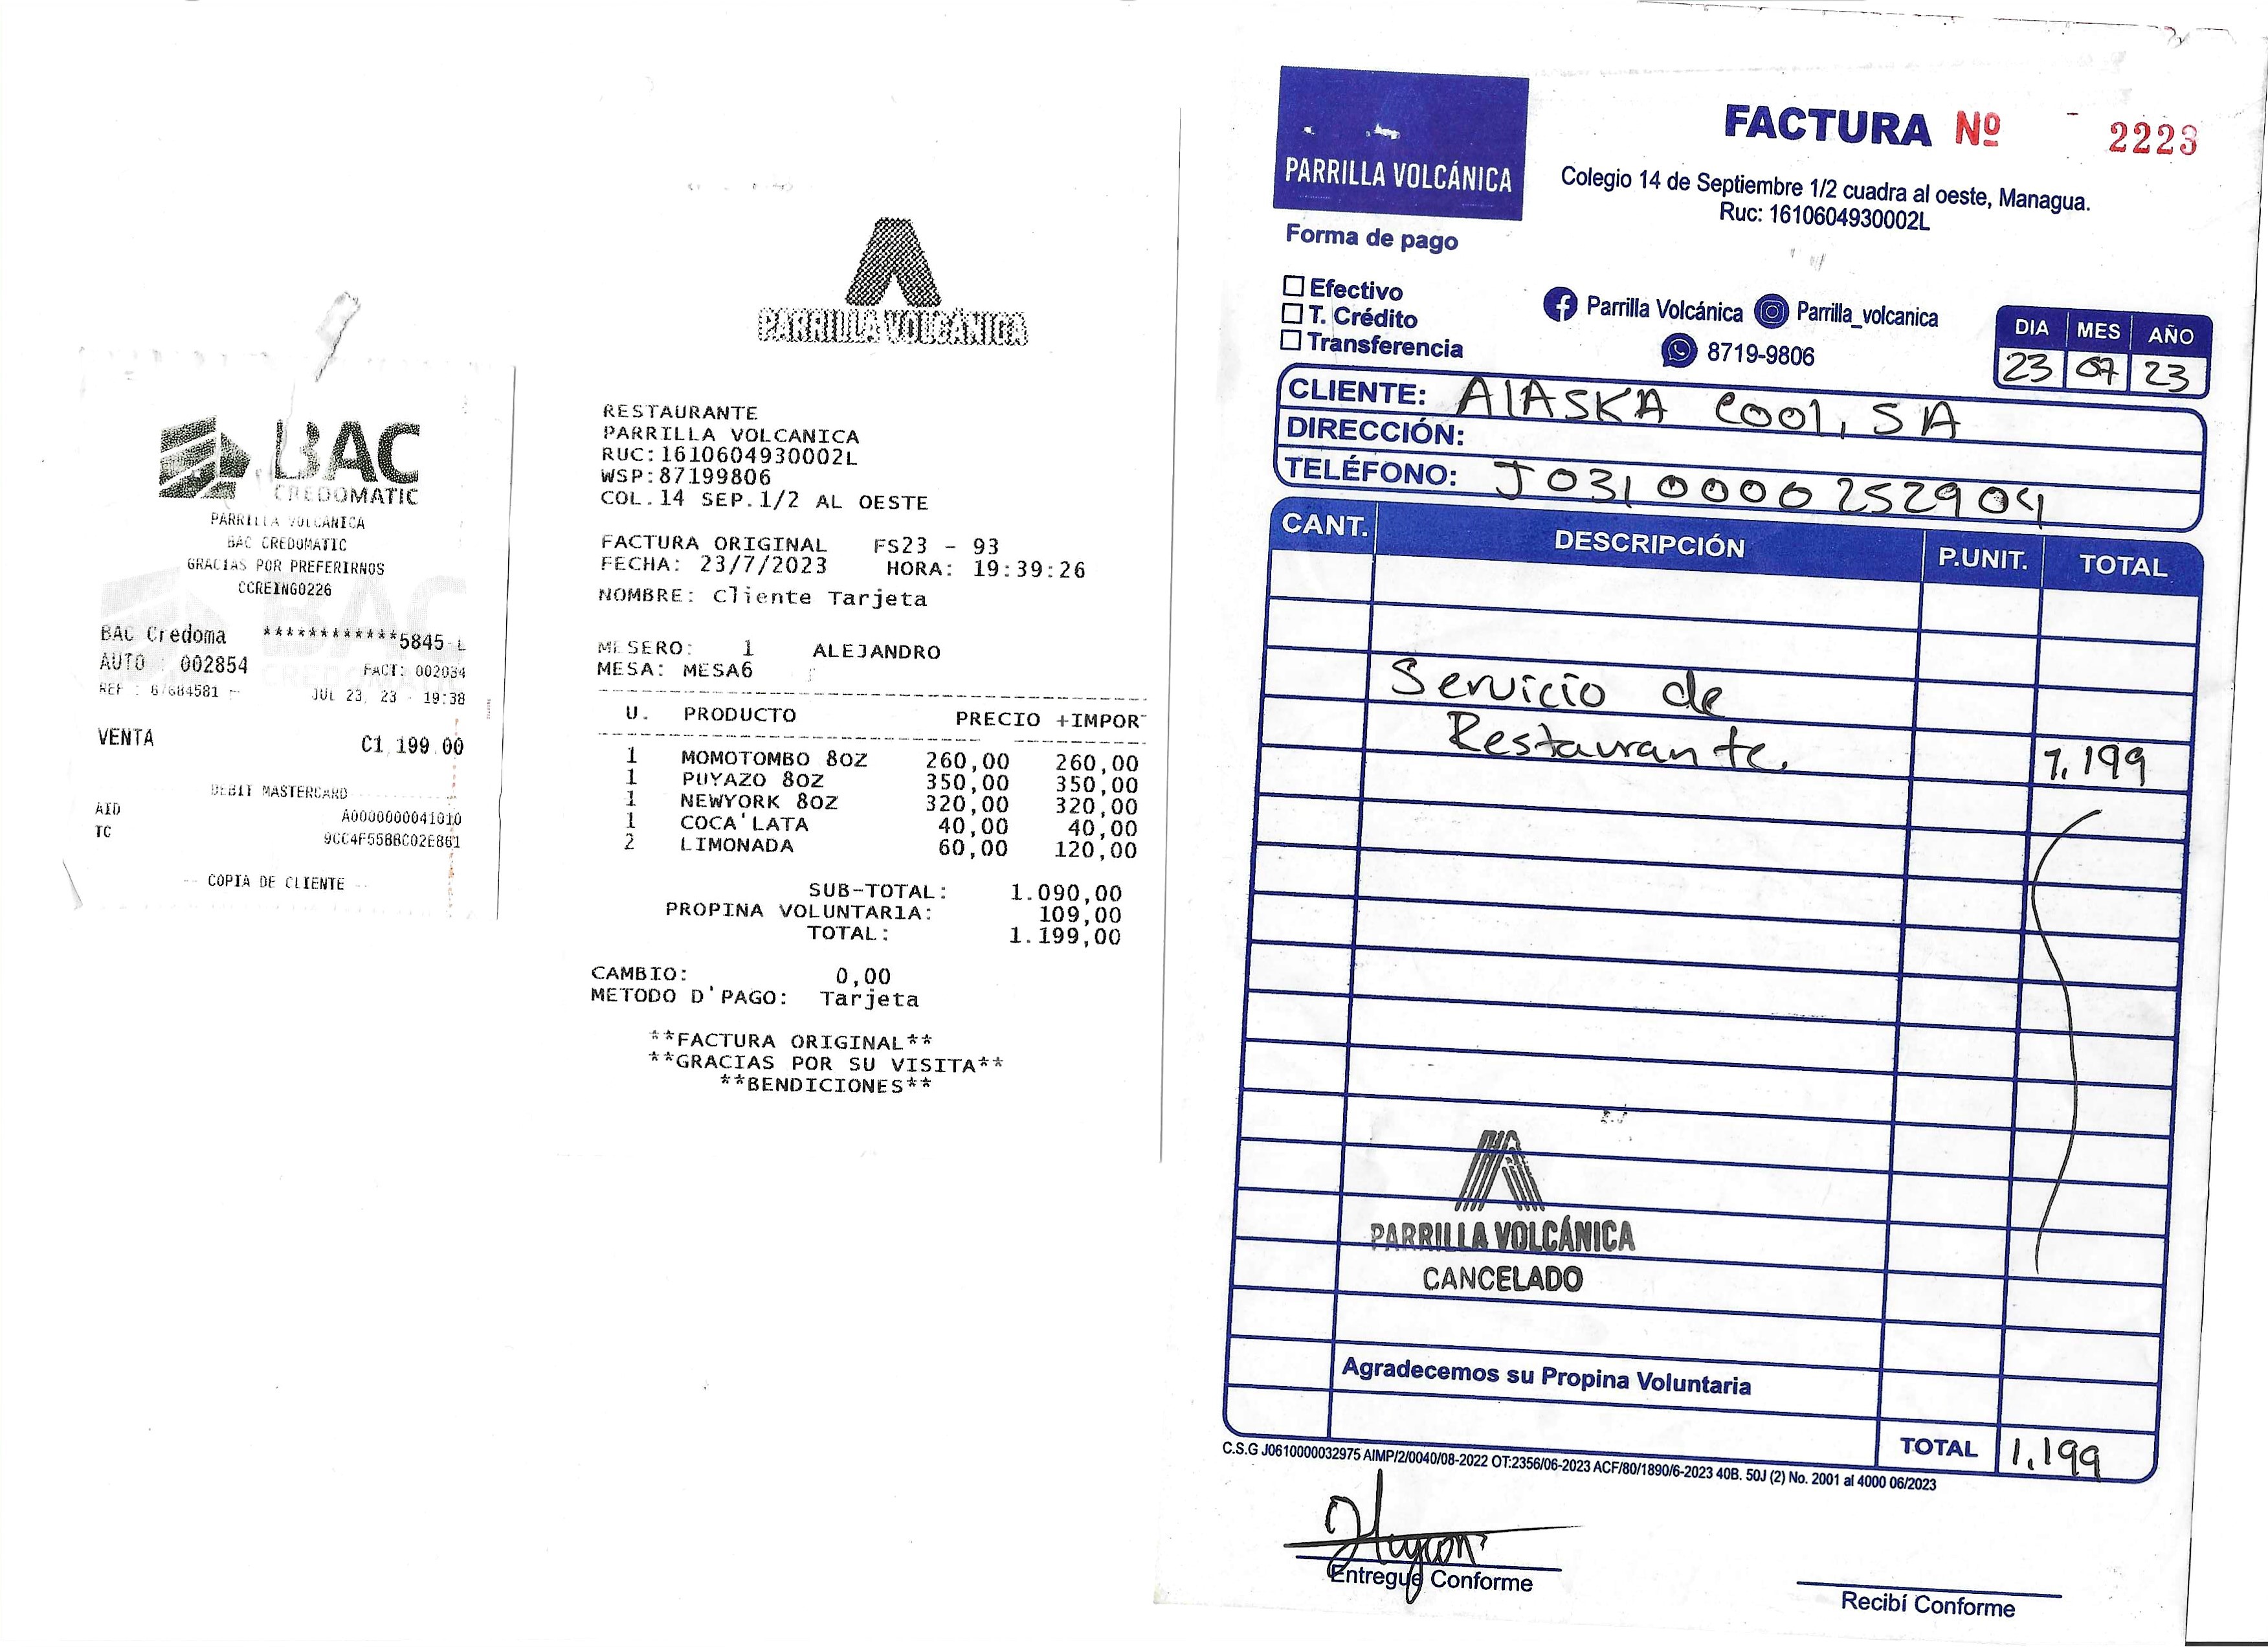 BAC
CREDOMATIC
PARRILLA VOLCANICA
BAC CREDOMATIC
GRACIAS POR PREFERIRNOS
CCREING0226
BAC Credoma ************5845-L
AUTO : 002854 FACT: 002034
REF : 67684581 JUL 23, 23 - 19:38
VENTA C1,199.00
DEBIT MASTERCARD
AID A0000000041010
TC 9CC4F55BBC02E861
-- COPIA DE CLIENTE --
PARRILLA VOLCÁNICA
RESTAURANTE
PARRILLA VOLCANICA
RUC:1610604930002L
WSP:87199806
COL.14 SEP.1/2 AL OESTE
FACTURA ORIGINAL FS23 - 93
FECHA: 23/7/2023 HORA: 19:39:26
NOMBRE: Cliente Tarjeta
MESERO: 1 ALEJANDRO
MESA: MESA6
U. PRODUCTO PRECIO +IMPOR
1 MOMOTOMBO 8OZ 260,00 260,00
1 PUYAZO 8OZ 350,00 350,00
1 NEWYORK 8OZ 320,00 320,00
1 COCA'LATA 40,00 40,00
2 LIMONADA 60,00 120,00
SUB-TOTAL: 1.090,00
PROPINA VOLUNTARIA: 109,00
TOTAL: 1.199,00
CAMBIO: 0,00
METODO D'PAGO: Tarjeta
**FACTURA ORIGINAL**
**GRACIAS POR SU VISITA**
**BENDICIONES**
PARRILLA VOLCÁNICA
FACTURA Nº 2223
Colegio 14 de Septiembre 1/2 cuadra al oeste, Managua.
Ruc: 1610604930002L
Forma de pago
Efectivo
T. Crédito
Transferencia
Parrilla Volcánica Parrilla_volcanica
8719-9806
DIA MES AÑO
23 07 23
CLIENTE: AlASKA COOl, SA
DIRECCIÓN:
TELÉFONO: J0310000252904
CANT. DESCRIPCIÓN P.UNIT. TOTAL
Servicio de
Restaurante. 1,199
PARRILLA VOLCÁNICA
CANCELADO
Agradecemos su Propina Voluntaria
TOTAL 1,199
C.S.G J0610000032975 AIMP/2/0040/08-2022 OT:2356/06-2023 ACF/80/1890/6-2023 40B. 50J (2) No. 2001 al 4000 06/2023
Entregue Conforme
Recibí Conforme